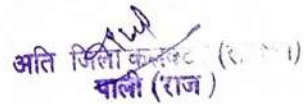 अति जिला कलक्ट
पाली (राज)